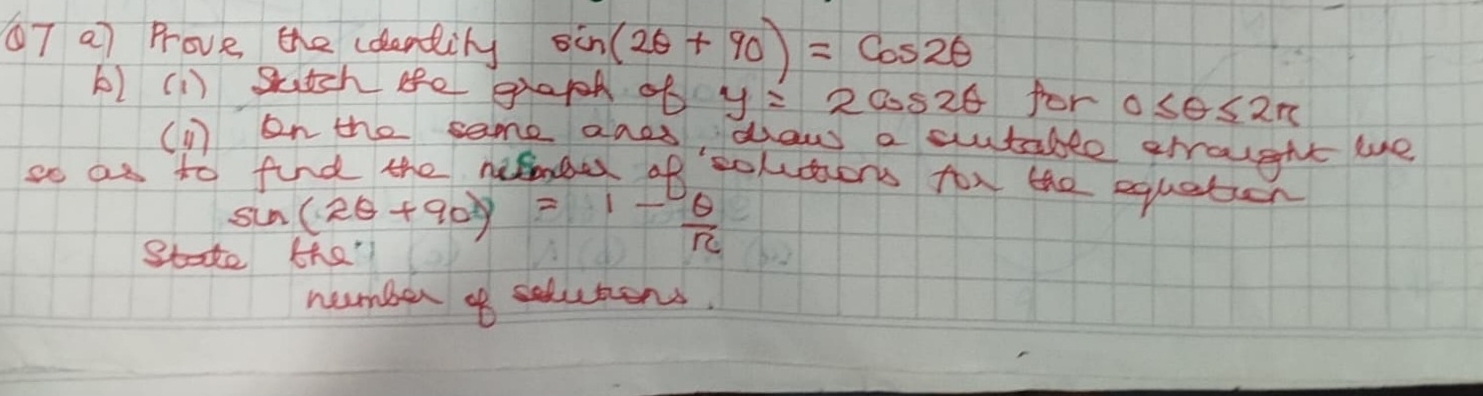 Q7 a) Prove the identity sin(2θ + 90) = Cos2θ
b) (i) Sketch the graph of y = 2Cos2θ for 0≤θ≤2π
(ii) On the same axes, draw a suitable straight line
so as to find the number of solutions for the equation
sin(2θ + 90) = 1 - θ/π
State the
number of solutions.